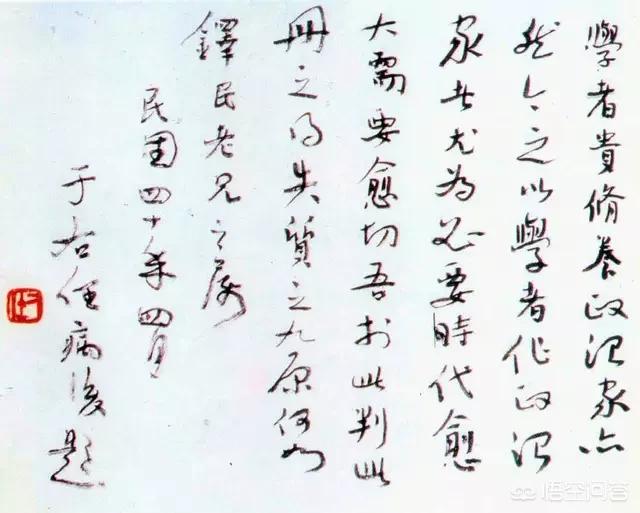 學者貴脩養政治家亦
然今之以學者作政治
家者尤為必要時代愈
大需要愈切吾於此判此
冊之得失質之九原何如
鐸民老兄之屬
民國四十年四月
于右任病後題
悟空问答